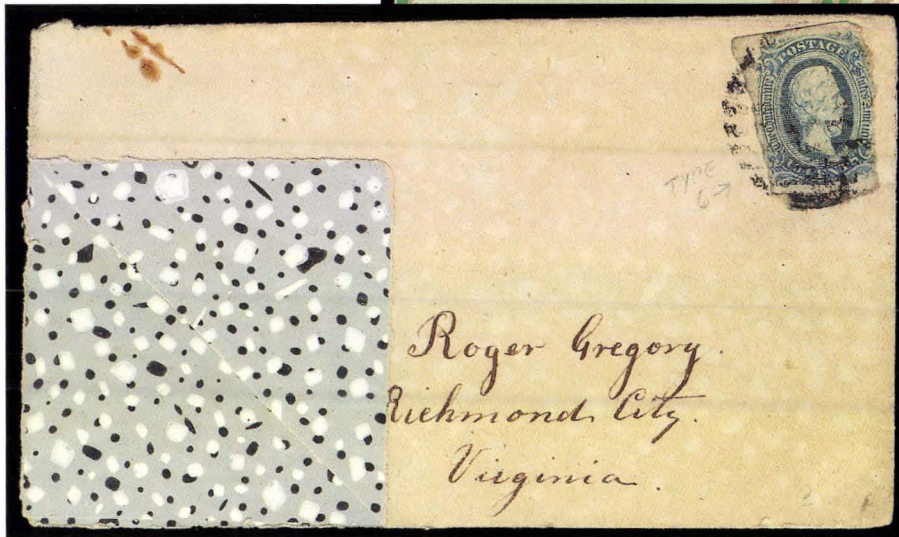 POSTAGE
TYPE
6→
Roger Gregory.
Richmond City.
Virginia.